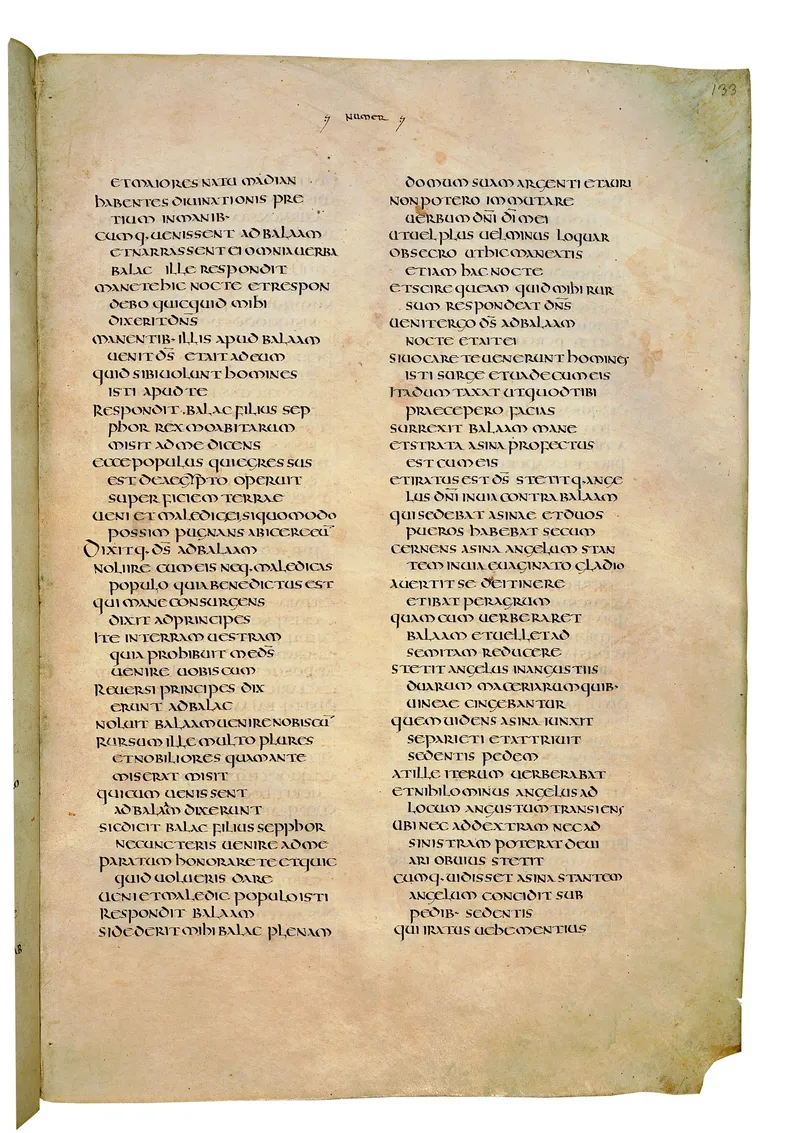 133
NUMER
ET MAIORES NATU MADIAN
HABENTES DIUINATIONIS PRE
TIUM IN MANIB·
CUMQ· UENISSENT AD BALAAM
ET NARRASSENT EI OMNIA UERBA
BALAC ILLE RESPONDIT
MANETE HIC NOCTE ET RESPON
DEBO QUICQUID MIHI
DIXERIT DN̄S
MANENTIB· ILLIS APUD BALAAM
UENIT D̄S ET AIT AD EUM
QUID SIBI UOLUNT HOMINES
ISTI APUD TE
RESPONDIT BALAC FILIUS SEP
PHOR REX MOABITARUM
MISIT AD ME DICENS
ECCE POPULUS QUI EGRESSUS
EST DE AEGYPTO OPERUIT
SUPERFICIEM TERRAE
UENI ET MALEDIC EI SI QUO MODO
POSSIM PUGNANS ABICERE EŪ
DIXITQ· D̄S AD BALAAM
NOLI IRE CUM EIS NEQ· MALEDICAS
POPULO QUIA BENEDICTUS EST
QUI MANE CONSURGENS
DIXIT AD PRINCIPES
ITE IN TERRAM UESTRAM
QUIA PROHIBUIT ME D̄S
UENIRE UOBISCUM
REUERSI PRINCIPES DIX
ERUNT AD BALAC
NOLUIT BALAAM UENIRE NOBISCŪ
RURSUM ILLE MULTO PLURES
ET NOBILIORES QUAM ANTE
MISERAT MISIT
QUI CUM UENISSENT
AD BALAAM DIXERUNT
SIC DICIT BALAC FILIUS SEPPHOR
NE CUNCTERIS UENIRE AD ME
PARATUM HONORARE TE ET QUIC
QUID UOLUERIS DARE
UENI ET MALEDIC POPULO ISTI
RESPONDIT BALAAM
SI DEDERIT MIHI BALAC PLENAM
DOMUM SUAM ARGENTI ET AURI
NON POTERO IMMUTARE
UERBUM DN̄I D̄I MEI
UT UEL PLUS UEL MINUS LOQUAR
OBSECRO UT HIC MANEATIS
ETIAM HAC NOCTE
ET SCIRE QUEAM QUID MIHI RUR
SUM RESPONDEAT DN̄S
UENIT ERGO D̄S AD BALAAM
NOCTE ET AIT EI
SI UOCARE TE UENERUNT HOMINES
ISTI SURGE ET UADE CUM EIS
ITA DUMTAXAT UT QUOD TIBI
PRAECEPERO FACIAS
SURREXIT BALAAM MANE
ET STRATA ASINA PROFECTUS
EST CUM EIS
ET IRATUS EST D̄S STETITQ· ANGE
LUS DN̄I IN UIA CONTRA BALAAM
QUI SEDEBAT ASINAE ET DUOS
PUEROS HABEBAT SECUM
CERNENS ASINA ANGELUM STAN
TEM IN UIA EUAGINATO GLADIO
AUERTIT SE DE ITINERE
ET IBAT PER AGRUM
QUAM CUM UERBERARET
BALAAM ET UELLET AD
SEMITAM REDUCERE
STETIT ANGELUS IN ANGUSTIIS
DUARUM MACERIARUM QUIB·
UINEAE CINGEBANTUR
QUEM UIDENS ASINA IUNXIT
SE PARIETI ET ATTRIUIT
SEDENTIS PEDEM
AT ILLE ITERUM UERBERABAT
ET NIHILOMINUS ANGELUS AD
LOCUM ANGUSTUM TRANSIENS
UBI NEC AD DEXTRAM NEC AD
SINISTRAM POTERAT DEUI
ARI OBUIUS STETIT
CUMQ· UIDISSET ASINA STANTEM
ANGELUM CONCIDIT SUB
PEDIB· SEDENTIS
QUI IRATUS UEHEMENTIUS